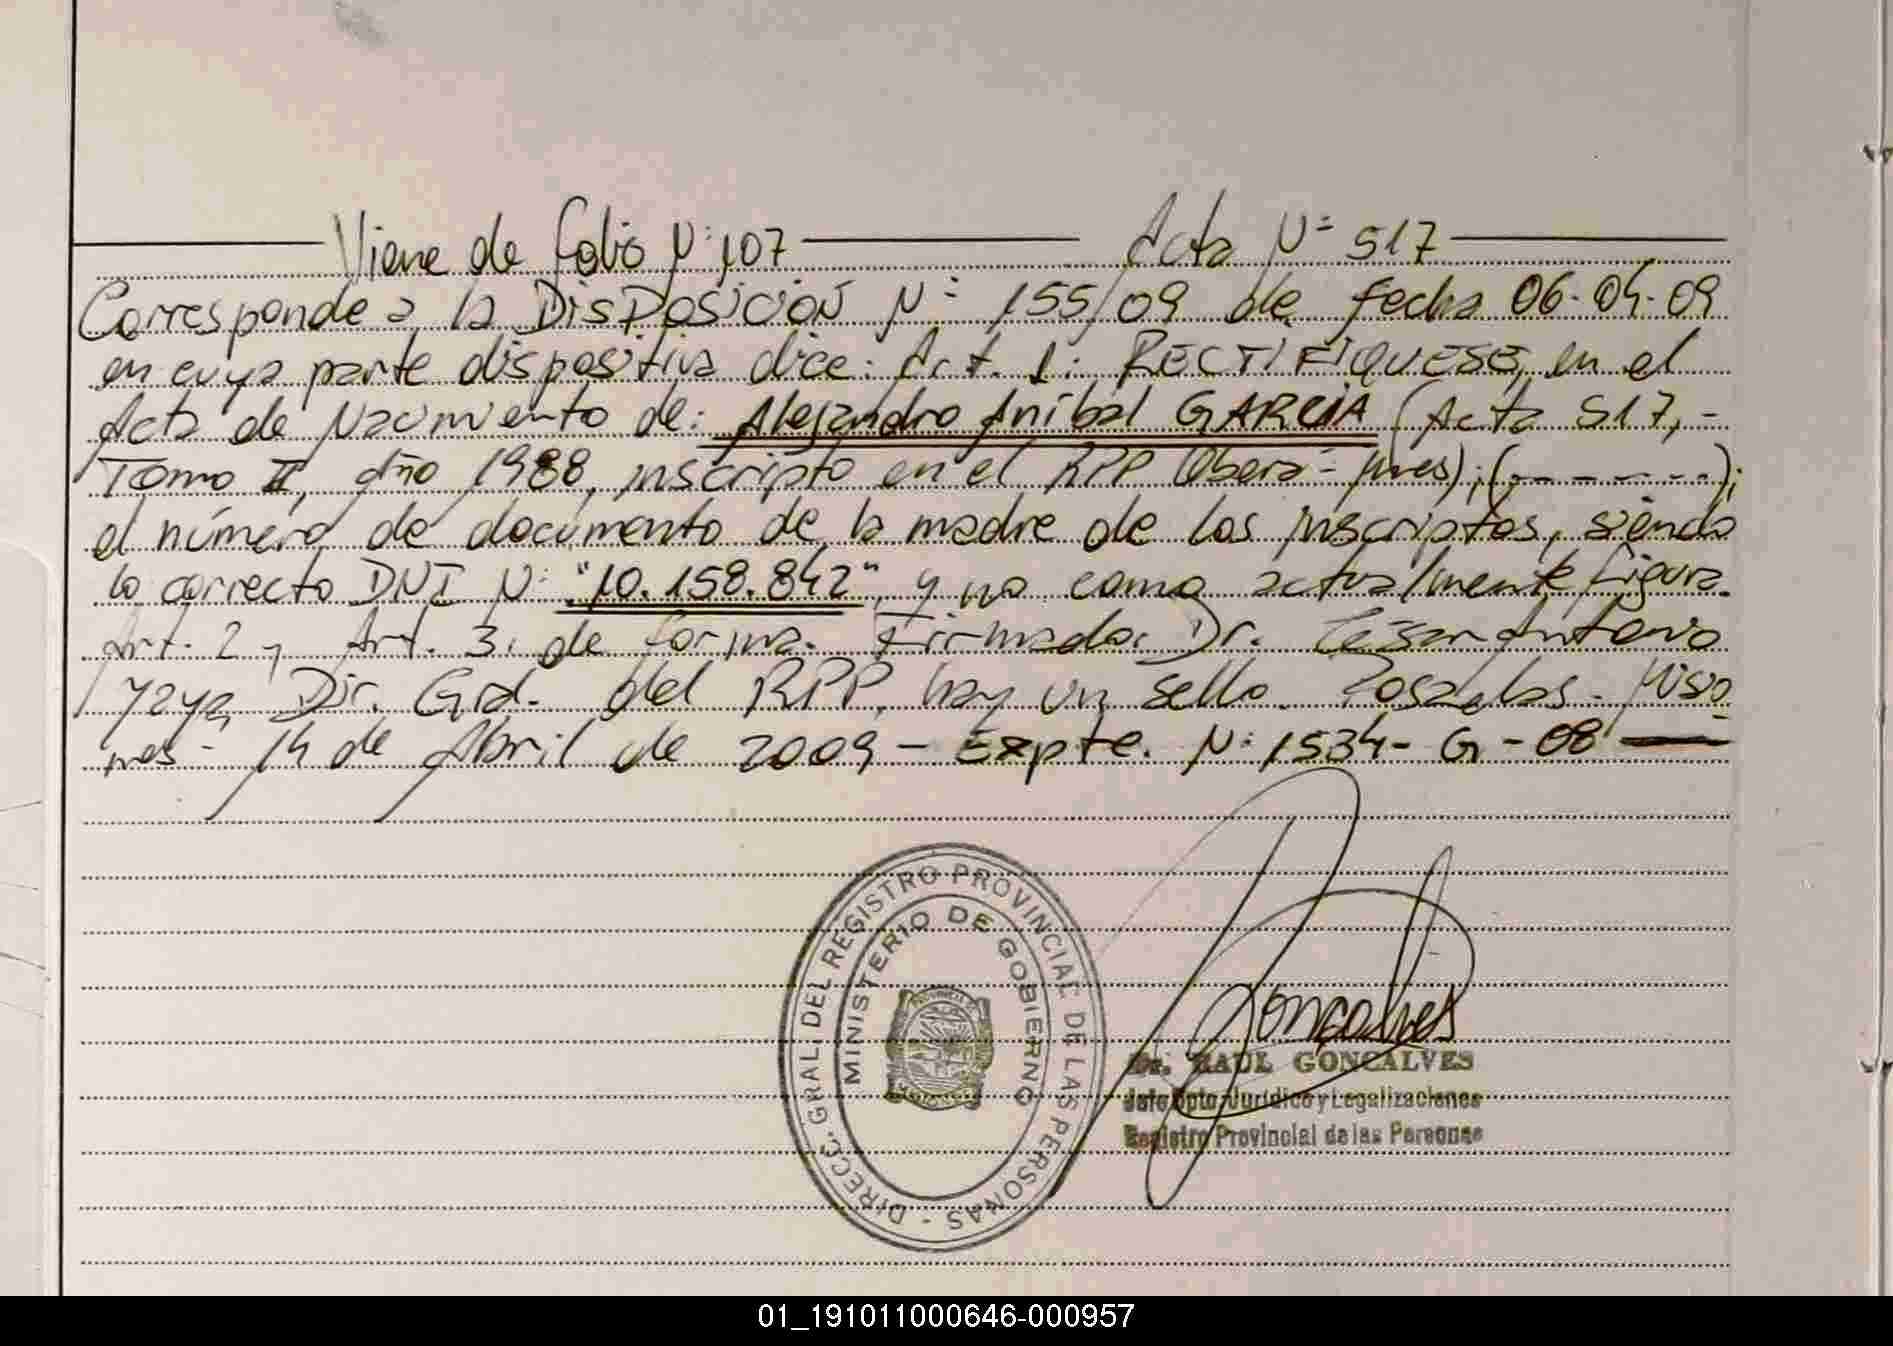 Viene de folio N: 107 Acta N= 517
Corresponde a la DISPOSICION N= 155/09 de fecha 06-04-09
en cuya parte dispositiva dice: Art. 1: RECTIFIQUESE, en el
Acta de Nacimiento de: Alejandro Aníbal GARCIA (Acta 517,-
Tomo II, año 1988, inscripto en el RPP Oberá- Mnes); (- - - - - -);
el número de documento de la madre de los inscriptos, siendo
lo correcto DNI N: "10.158.842", y no como actualmente figura.
Art. 2 y Art. 3. de forma. Firmado. Dr. César Antonio
Yaya, Dir. Gral. del RPP. hay un sello. Posadas. Misio
nes- 14 de Abril de 2009 - Expte. N: 1534- G - 08
DIRECC. GRAL. DEL REGISTRO PROVINCIAL DE LAS PERSONAS -
MINISTERIO DE GOBIERNO
Goncalves
Dr. RAUL GONCALVES
Jefe Dpto. Jurídico y Legalizaciones
Registro Provincial de las Personas
01_191011000646-000957